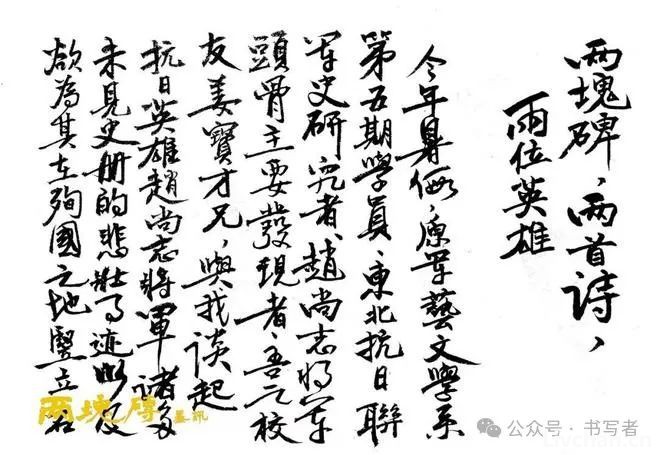 两塊碑，两首诗，
兩位英雄
今年暑假，原军藝文學系
第五期學員、東北抗日聯
军史研究者、趙尚志将军
頭骨主要發現者、吾之校
友姜寶才兄，與我谈起
抗日英雄趙尚志將軍諸多
未見史册的悲壯事迹以及
欲為其在殉國之地豎立石
兩塊磚
公众号·书写者